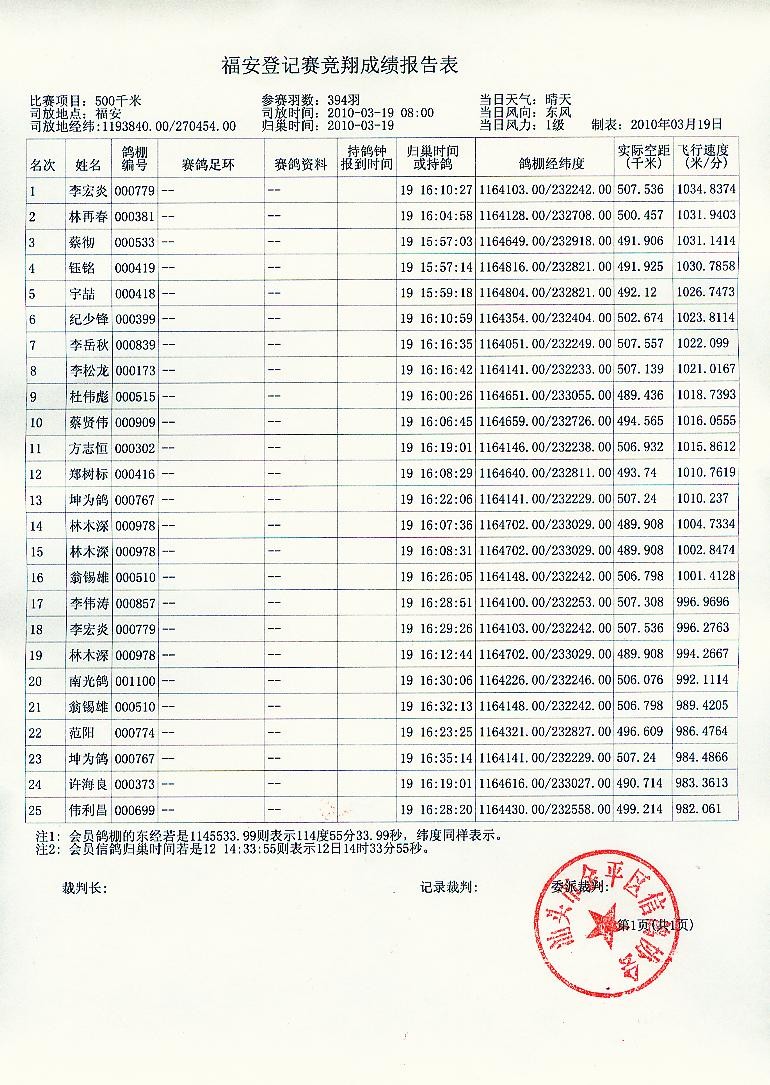 福安登记赛竞翔成绩报告表
比赛项目: 500千米 参赛羽数: 394羽 当日天气: 晴天
司放地点: 福安 司放时间: 2010-03-19 08:00 当日风向: 东风
司放地经纬:1193840.00/270454.00 归巢时间: 2010-03-19 当日风力: 1级 制表: 2010年03月19日
名次 姓名 鸽棚编号 赛鸽足环 赛鸽资料 持鸽钟报到时间 归巢时间或持鸽 鸽棚经纬度 实际空距(千米) 飞行速度(米/分)
1 李宏炎 000779 -- -- 19 16:10:27 1164103.00/232242.00 507.536 1034.8374
2 林再春 000381 -- -- 19 16:04:58 1164128.00/232708.00 500.457 1031.9403
3 蔡彻 000533 -- -- 19 15:57:03 1164649.00/232918.00 491.906 1031.1414
4 钰铭 000419 -- -- 19 15:57:14 1164816.00/232821.00 491.925 1030.7858
5 宇喆 000418 -- -- 19 15:59:18 1164804.00/232821.00 492.12 1026.7473
6 纪少锋 000399 -- -- 19 16:10:59 1164354.00/232404.00 502.674 1023.8114
7 李岳秋 000839 -- -- 19 16:16:35 1164051.00/232249.00 507.557 1022.099
8 李松龙 000173 -- -- 19 16:16:42 1164141.00/232233.00 507.139 1021.0167
9 杜伟彪 000515 -- -- 19 16:00:26 1164651.00/233055.00 489.436 1018.7393
10 蔡贤伟 000909 -- -- 19 16:06:45 1164659.00/232726.00 494.565 1016.0555
11 方志恒 000302 -- -- 19 16:19:01 1164146.00/232238.00 506.932 1015.8612
12 郑树标 000416 -- -- 19 16:08:29 1164640.00/232811.00 493.74 1010.7619
13 坤为鸽 000767 -- -- 19 16:22:06 1164141.00/232229.00 507.24 1010.237
14 林木深 000978 -- -- 19 16:07:36 1164702.00/233029.00 489.908 1004.7334
15 林木深 000978 -- -- 19 16:08:31 1164702.00/233029.00 489.908 1002.8474
16 翁锡雄 000510 -- -- 19 16:26:05 1164148.00/232242.00 506.798 1001.4128
17 李伟涛 000857 -- -- 19 16:28:51 1164100.00/232253.00 507.308 996.9696
18 李宏炎 000779 -- -- 19 16:29:26 1164103.00/232242.00 507.536 996.2763
19 林木深 000978 -- -- 19 16:12:44 1164702.00/233029.00 489.908 994.2667
20 南光鸽 001100 -- -- 19 16:30:06 1164226.00/232246.00 506.076 992.1114
21 翁锡雄 000510 -- -- 19 16:32:13 1164148.00/232242.00 506.798 989.4205
22 范阳 000774 -- -- 19 16:23:25 1164321.00/232827.00 496.609 986.4764
23 坤为鸽 000767 -- -- 19 16:35:14 1164141.00/232229.00 507.24 984.4866
24 许海良 000373 -- -- 19 16:19:01 1164616.00/233027.00 490.714 983.3613
25 伟利昌 000699 -- -- 19 16:28:20 1164430.00/232558.00 499.214 982.061
注1: 会员鸽棚的东经若是1145533.99则表示114度55分33.99秒, 纬度同样表示。
注2: 会员信鸽归巢时间若是12 14:33:55则表示12日14时33分55秒。
裁判长: 记录裁判: 委派裁判:
第1页(共1页)
汕头市金平区信鸽协会